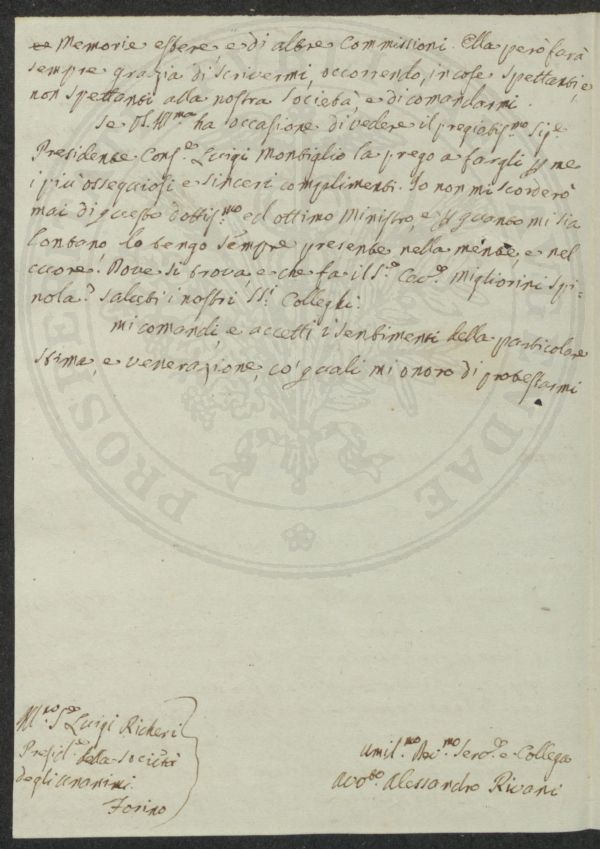 Memorie estere, e di altre Commissioni. Ella però farà
sempre grazia di scrivermi, occorrendo, in cose spettanti, e
non spettanti alla nostra Società, e di comandarmi.
Se VS. Ill.ma ha l'occasione di vedere il pregiatis.mo Sig.e
Presidente Cons.e Luigi Montiglio la prego a fargli per me
i più ossequiosi e sinceri complimenti. Io non mi scorderò
mai di questo dottis.mo ed ottimo Ministro, e per quanto mi sia
lontano, lo tengo sempre presente nella mente, e nel
cuore. Dove si trova, e che fa il S.e Cav.e Migliorini Spi-
nola? Saluti i nostri SS.i Colleghi.
Mi comandi, e accetti i sentimenti della particolare
stima, e venerazione, co' quali mi onoro di protestarmi
Ill.mo S.e Luigi Richeri
Presid.e della Società
degli Unanimi.
Torino
Umil.mo Dev.mo Serv.e e Collega
Avv.to Alessandro Rivani
PROSPE
NDAE